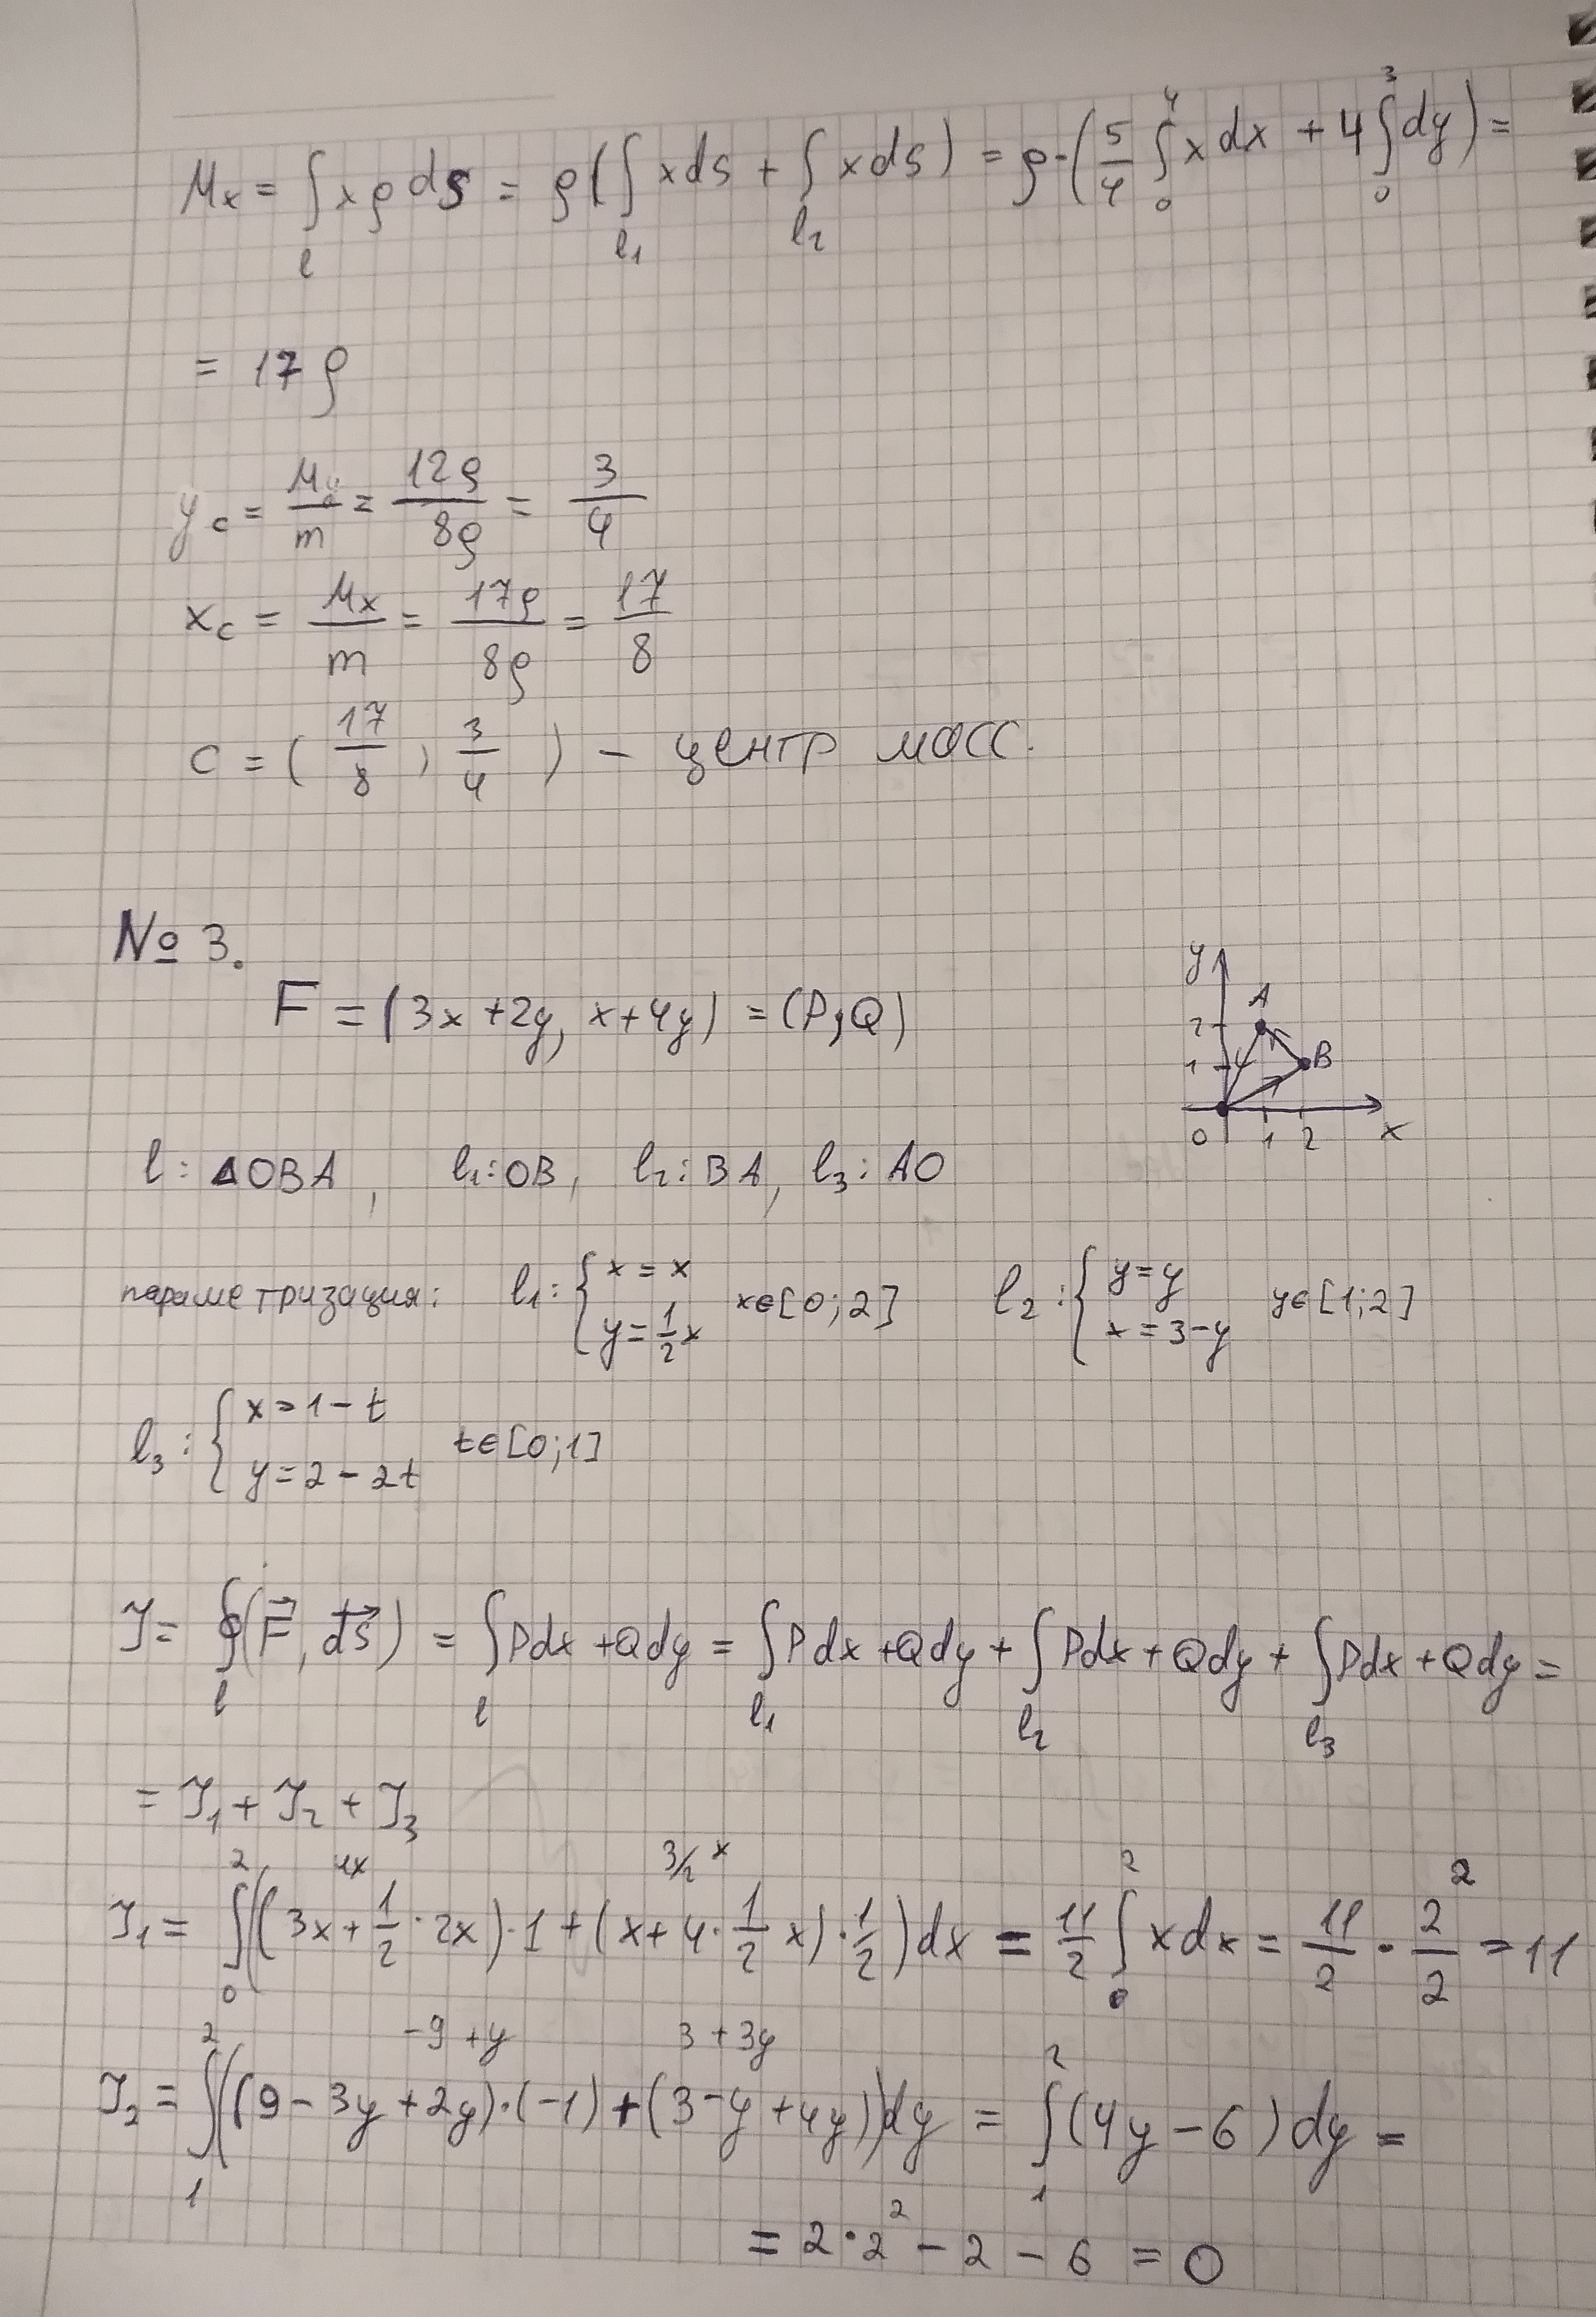 Mx = ∫_l xρ ds = ρ(∫_l₁ x ds + ∫_l₂ x ds) = ρ·(5/4 ∫₀⁴ x dx + 4 ∫₀³ dy) =
= 17ρ
y_c = My/m = 12ρ/8ρ = 3/4
x_c = Mx/m = 17ρ/8ρ = 17/8
C = (17/8, 3/4) – центр масс.
№ 3.
F = (3x+2y, x+4y) = (P, Q)
y
A
2
1
B
0 1 2 x
l: ΔOBA, l₁: OB, l₂: BA, l₃: AO
параметризация: l₁: { x = x, y = 1/2 x x∈[0;2] l₂: { y = y, x = 3-y y∈[1;2]
l₃: { x = 1-t, y = 2-2t t∈[0;1]
J = ∮_l (F⃗, ds⃗) = ∫_l Pdx + Qdy = ∫_l₁ Pdx + Qdy + ∫_l₂ Pdx + Qdy + ∫_l₃ Pdx + Qdy =
= J₁ + J₂ + J₃
4x 3/2 x
J₁ = ∫₀² ((3x + 1/2·2x)·1 + (x + 4·1/2 x)·1/2) dx = 11/2 ∫₀² x dx = 11/2 · 2²/2 = 11
-9+y 3+3y
J₂ = ∫₁² ((9-3y+2y)·(-1) + (3-y+4y)) dy = ∫₁² (4y-6) dy =
= 2·2² - 2 - 6 = 0